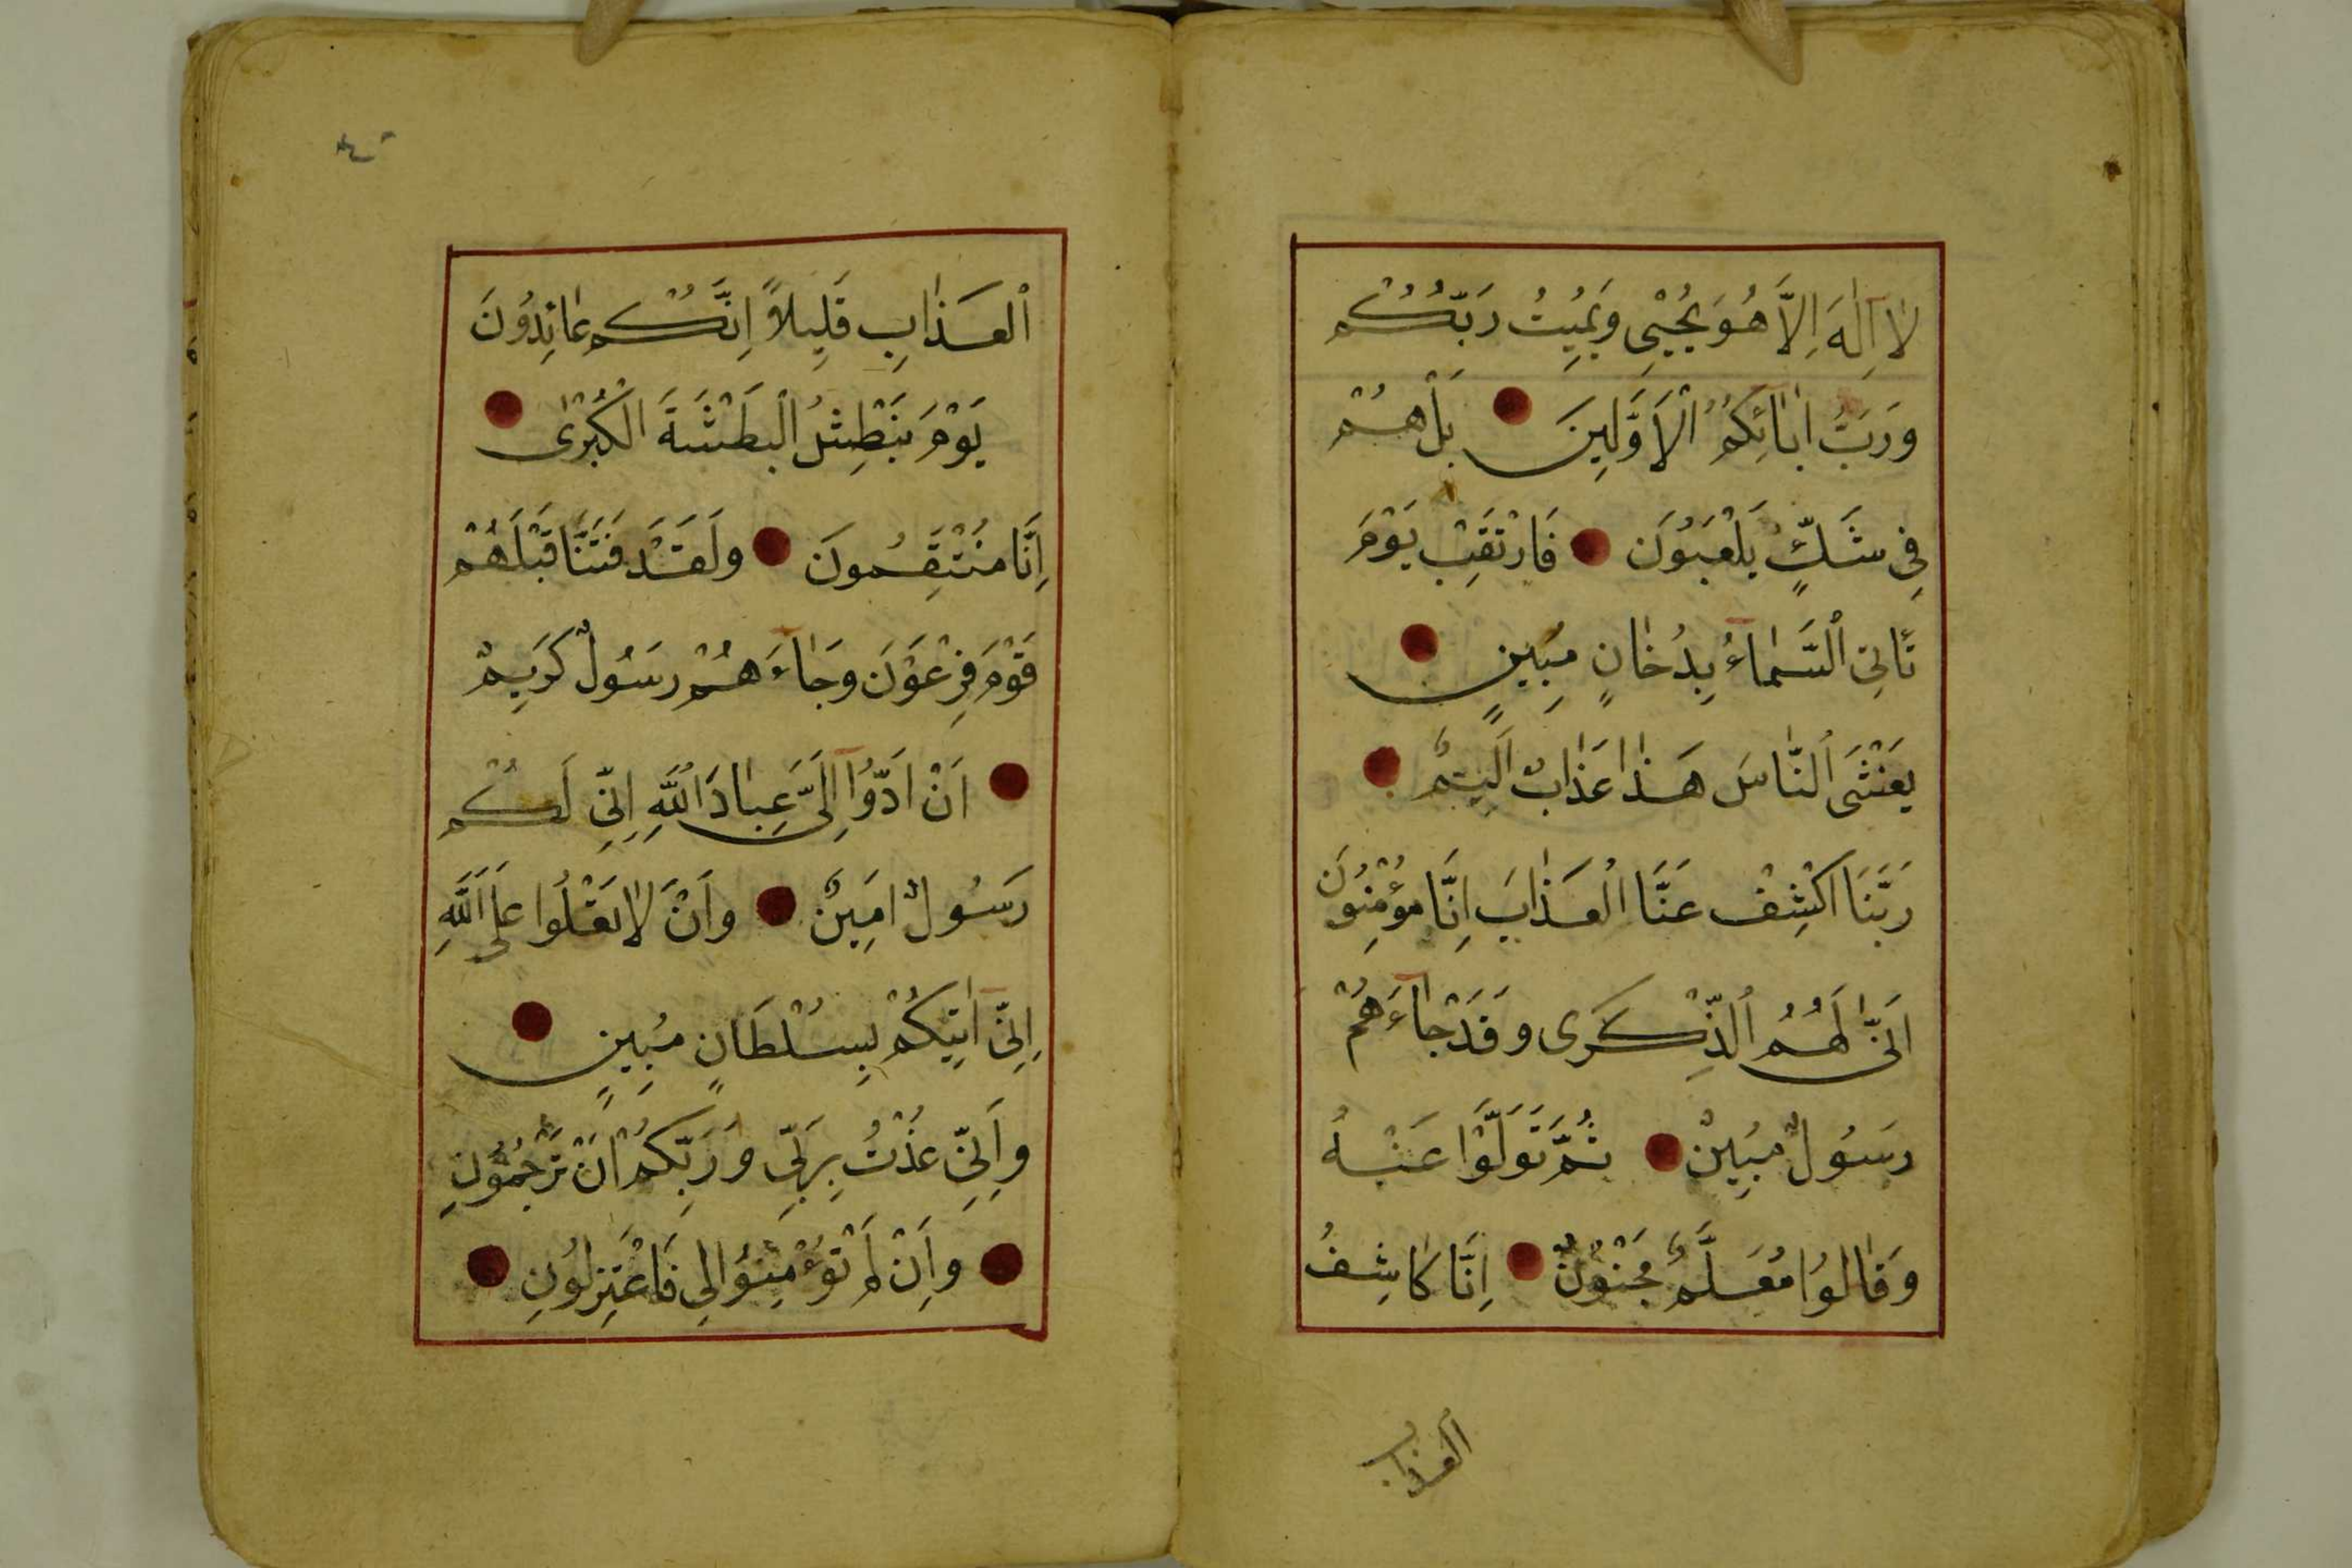 لَا اِلٰهَ اِلَّا هُوَ يُحْيِي وَيُمِيتُ رَبُّكُمْ
وَرَبُّ اٰبَائِكُمُ الْاَوَّلِينَ ● بَلْ هُمْ
فِي شَكٍّ يَلْعَبُونَ ● فَارْتَقِبْ يَوْمَ
تَأْتِي السَّمَاءُ بِدُخَانٍ مُبِينٍ ●
يَغْشَى النَّاسَ هٰذَا عَذَابٌ اَلِيمٌ ●
رَبَّنَا اكْشِفْ عَنَّا الْعَذَابَ اِنَّا مُؤْمِنُونَ
اَنّٰى لَهُمُ الذِّكْرٰى وَقَدْ جَاءَهُمْ
رَسُولٌ مُبِينٌ ● ثُمَّ تَوَلَّوْا عَنْهُ
وَقَالُوا مُعَلَّمٌ مَجْنُونٌ ● اِنَّا كَاشِفُ
العذاب
الْعَذَابِ قَلِيلًا اِنَّكُمْ عَائِدُونَ
يَوْمَ نَبْطِشُ الْبَطْشَةَ الْكُبْرٰى ●
اِنَّا مُنْتَقِمُونَ ● وَلَقَدْ فَتَنَّا قَبْلَهُمْ
قَوْمَ فِرْعَوْنَ وَجَاءَهُمْ رَسُولٌ كَرِيمٌ
● اَنْ اَدُّوا اِلَيَّ عِبَادَ اللّٰهِ اِنِّي لَكُمْ
رَسُولٌ اَمِينٌ ● وَاَنْ لَا تَعْلُوا عَلَى اللّٰهِ
اِنِّي اٰتِيكُمْ بِسُلْطَانٍ مُبِينٍ ●
وَاِنِّي عُذْتُ بِرَبِّي وَرَبِّكُمْ اَنْ تَرْجُمُونِ
● وَاِنْ لَمْ تُؤْمِنُوا لِي فَاعْتَزِلُونِ ●